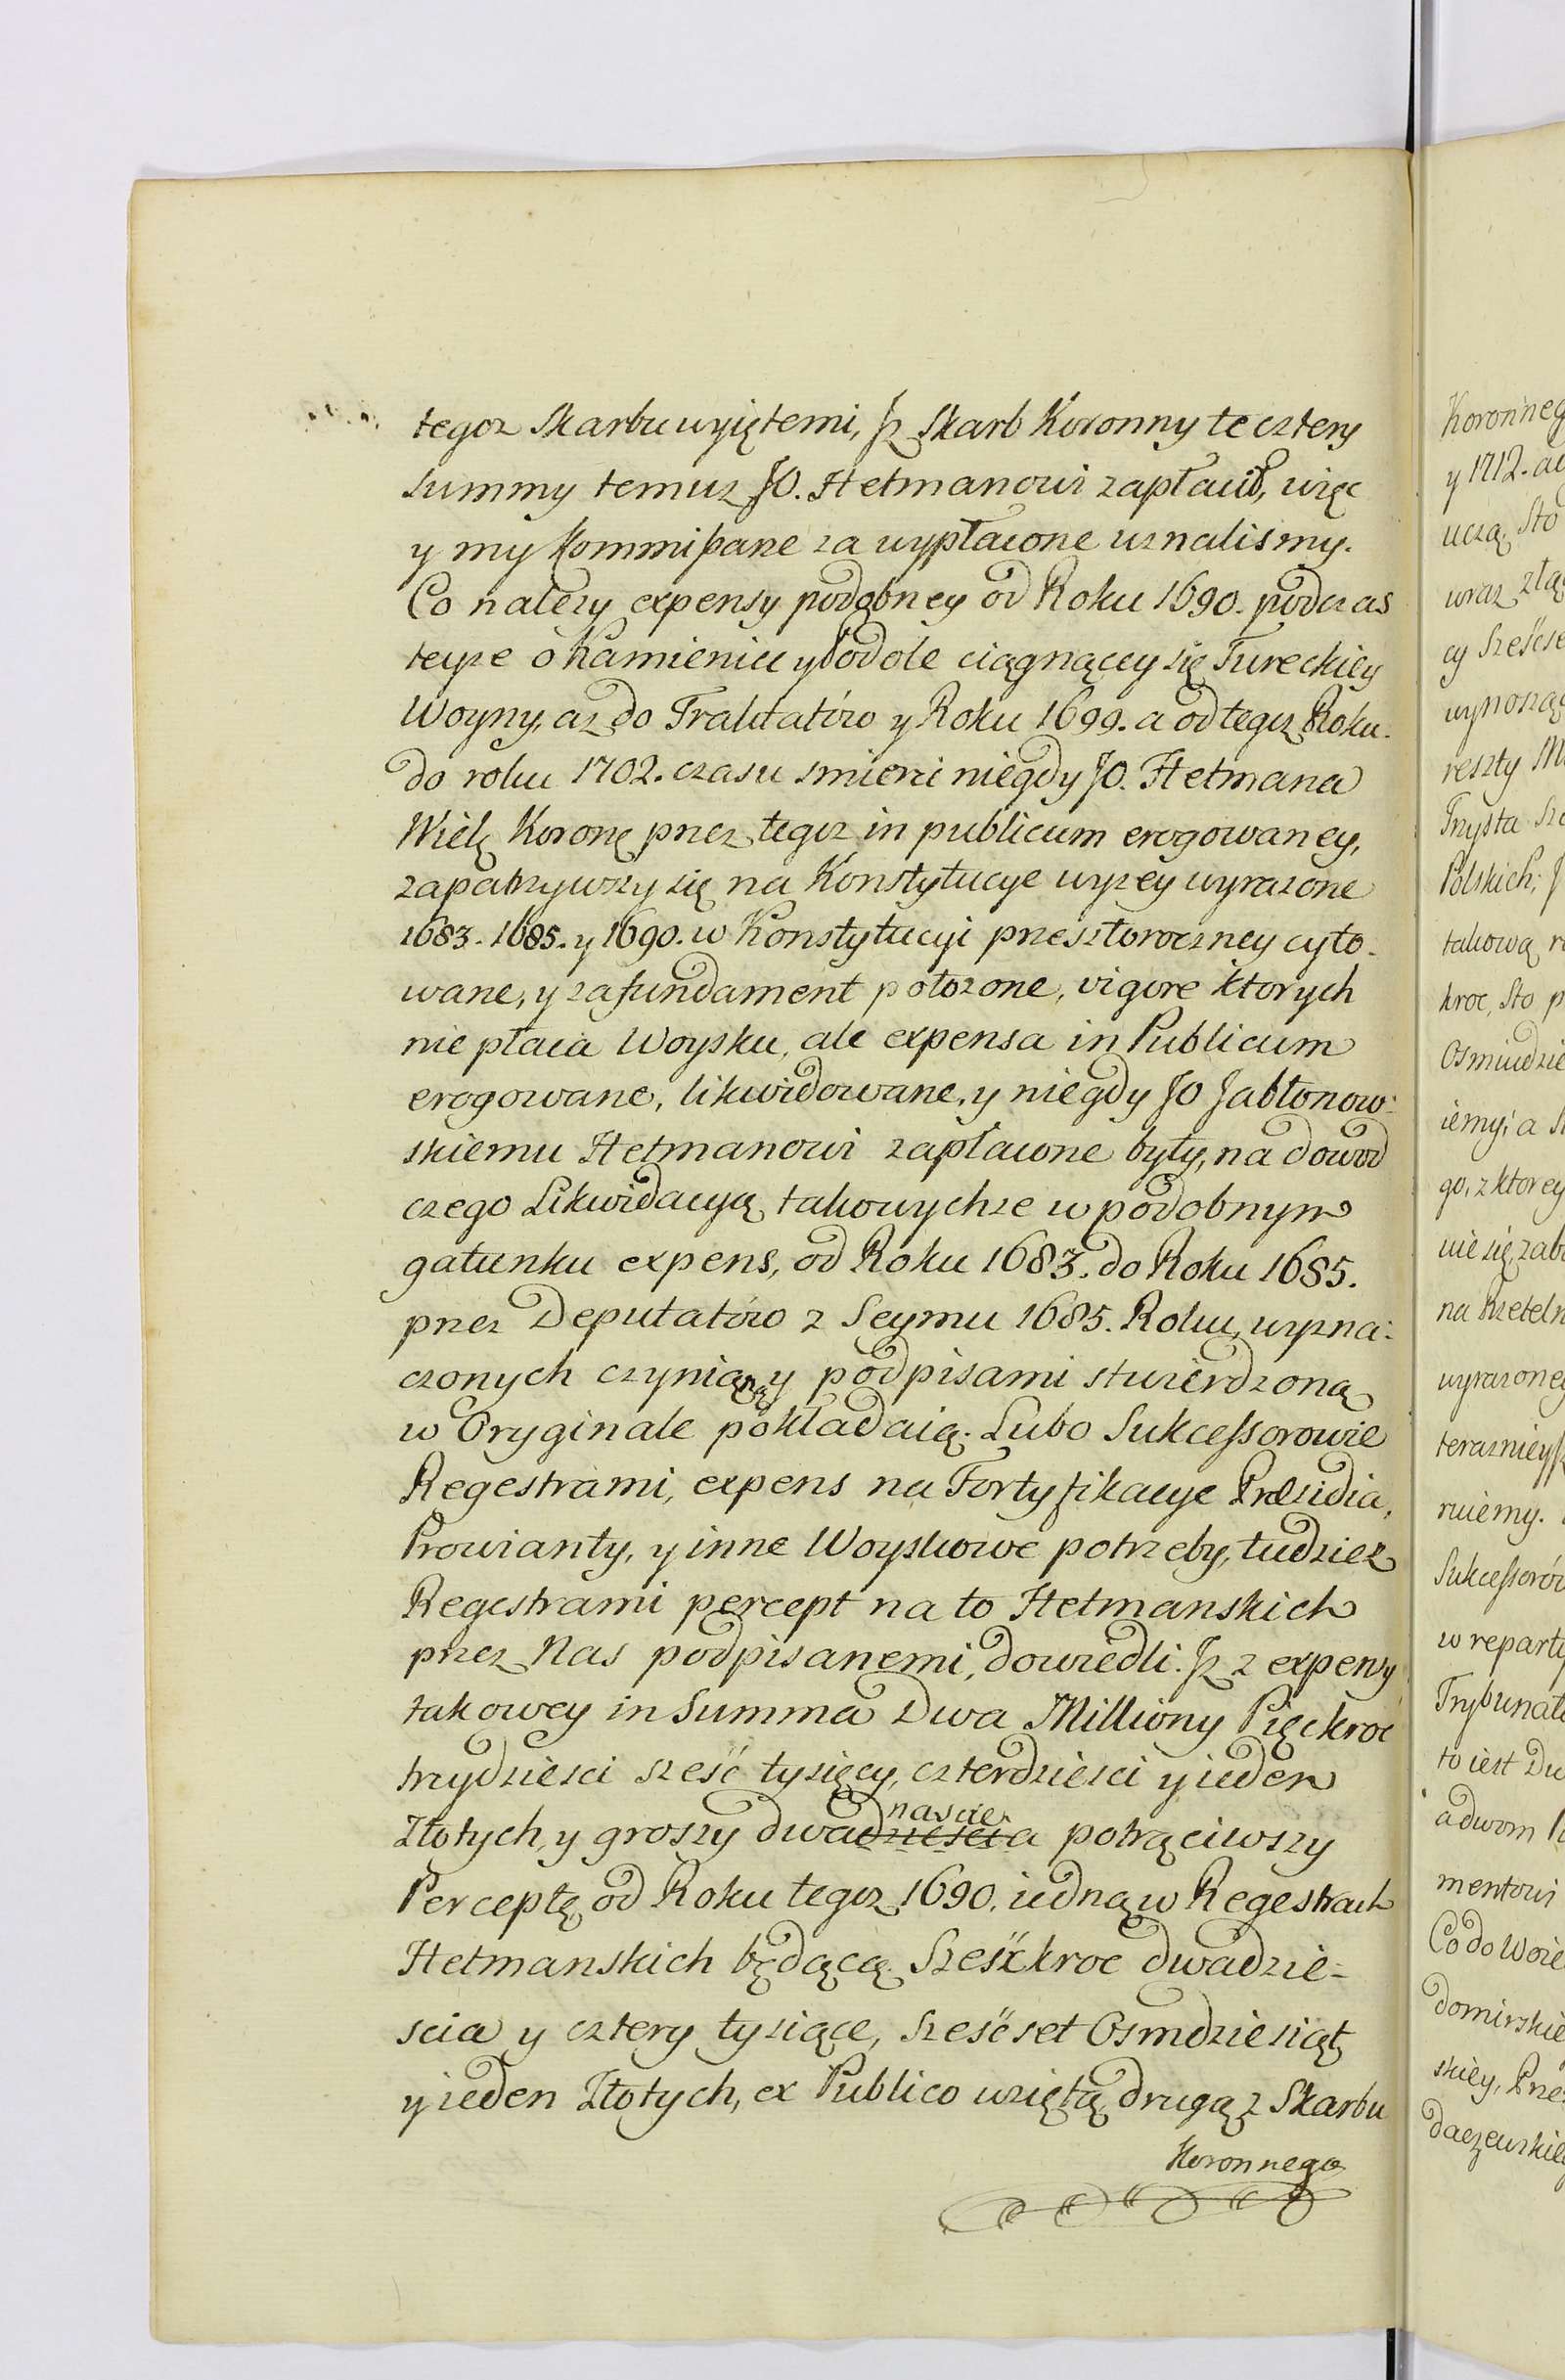 tegoz Skarbu wyiętemi, Jż Skarb Koronny te cztery
summy temuz JO. Hetmanowi zapłacił, więc
y my Kommißarze za wypłacone uznalismy.
Co nalezy expensy podobney od Roku 1690. podczas
teyze o Kamieniec y Podole ciągnącey się Tureckiey
Woyny, az do Traktatów y Roku 1699. a od tegoz Roku
do roku 1702. czasu smierci niegdy JO. Hetmana
Wielg Korong przez tegoz in publicum erogowaney,
zapatrzywszy się na Konstytucye wyzey wyrazone
1683. 1685. y 1690. w Konstytucyi przeszłoroczney cyto-
wane, y za fundament położone, vigore ktorych
nie płaca Woysku, ale expensa in Publicum
erogowane, likwidowane, y niegdy JO Jabłonow-
skiemu Hetmanowi zapłacone były, na dowod
czego Likwidacyą takowychze w podobnym
gatunku expens, od Roku 1683. do Roku 1685.
przez Deputatów z Seymu 1685. Roku, wyzna-
czonych czynioną y podpisami stwierdzoną
w Oryginale pokładaią. Lubo Sukcessorowie
Regestrami, expens na Fortyfikacye Præsidia,
Prowianty, y inne Woyskowe potrzeby, tudziez
Regestrami percept na to Hetmanskich
przez Nas podpisanemi, dowiedli. Jż z expensy
takowey in Summa Dwa Milliony Pięckroc
trzydziesci sześć tysięcy, czterdziesci y ieden
nascie
Złotych, y groszy dwadziescia a potrąciwszy
Perceptę od Roku tegoz 1690. iedną w Regestrach
Hetmanskich będącą Sześćkroc dwadzie-
scia y cztery tysiące, Sześćset Osmdziesiąt
y ieden Złotych, ex Publico wziętą drugą z Skarbu
Koronnego
Koronneg
y 1712.
uczą, Sto
wraz złą
cy Sześcse
wynoszą
reszty
Trzysta
Polskich;
takową
kroc, Sto
Osmiudzie
iemy; a
go, z ktorey
nie się
na Rzeteln
wyrazone
teraznieysz
ruiemy.
Sukcessorów
w reparty
Trybunal
to iest
a dwom
mentowi
Co do Woie
domirskie
skiey,